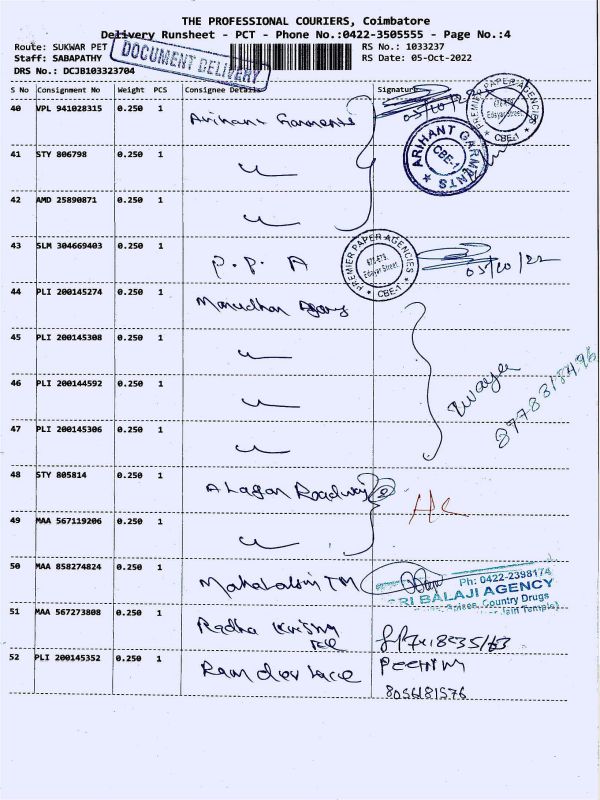 THE PROFESSIONAL COURIERS, Coimbatore
Delivery Runsheet - PCT - Phone No.:0422-3505555 - Page No.:4
Route: SUKWAR PET
RS No.: 1033237
Staff: SABAPATHY
RS Date: 05-Oct-2022
DRS No.: DCJB103323704
DOCUMENT DELIVERY
S No Consignment No Weight PCS Consignee Details Signature
40 VPL 941028315 0.250 1 Arihant Garments
05/10/22
PREMIER PAPER AGENCIES
Edayar Street
CBE-1
ARIHANT GARMENTS
CBE-1
41 STY 806798 0.250 1
42 AMD 25890871 0.250 1
43 SLM 304669403 0.250 1 P. P. A
PREMIER PAPER AGENCIES
Edayar Street
CBE-1
05/10/22
44 PLI 200145274 0.250 1
45 PLI 200145308 0.250 1
46 PLI 200144592 0.250 1
8778318496
47 PLI 200145306 0.250 1
48 STY 805814 0.250 1 Alagan Roadway
49 MAA 567119206 0.250 1
50 MAA 858274824 0.250 1 TM
Ph: 0422-2398174
SRI BALAJI AGENCY
Country Drugs
Temple)
51 MAA 567273808 0.250 1 Radha Krishna
52 PLI 200145352 0.250 1 Ram dev lace
8056181576